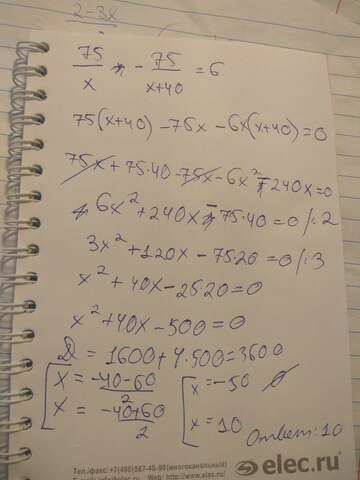 2-3x
75/x - 75/(x+40) = 6
75(x+40) - 75x - 6x(x+40) = 0
75x + 75·40 - 75x - 6x² - 240x = 0
6x² + 240x - 75·40 = 0 /:2
3x² + 120x - 75·20 = 0 /:3
x² + 40x - 25·20 = 0
x² + 40x - 500 = 0
D = 1600 + 4·500 = 3600
[ x = (-40-60)/2 [ x = -50 ∅
x = (-40+60)/2 x = 10
Ответ: 10
Тел./факс: +7(495)587-40-90(многоканальный)
elec.ru
elec.ru